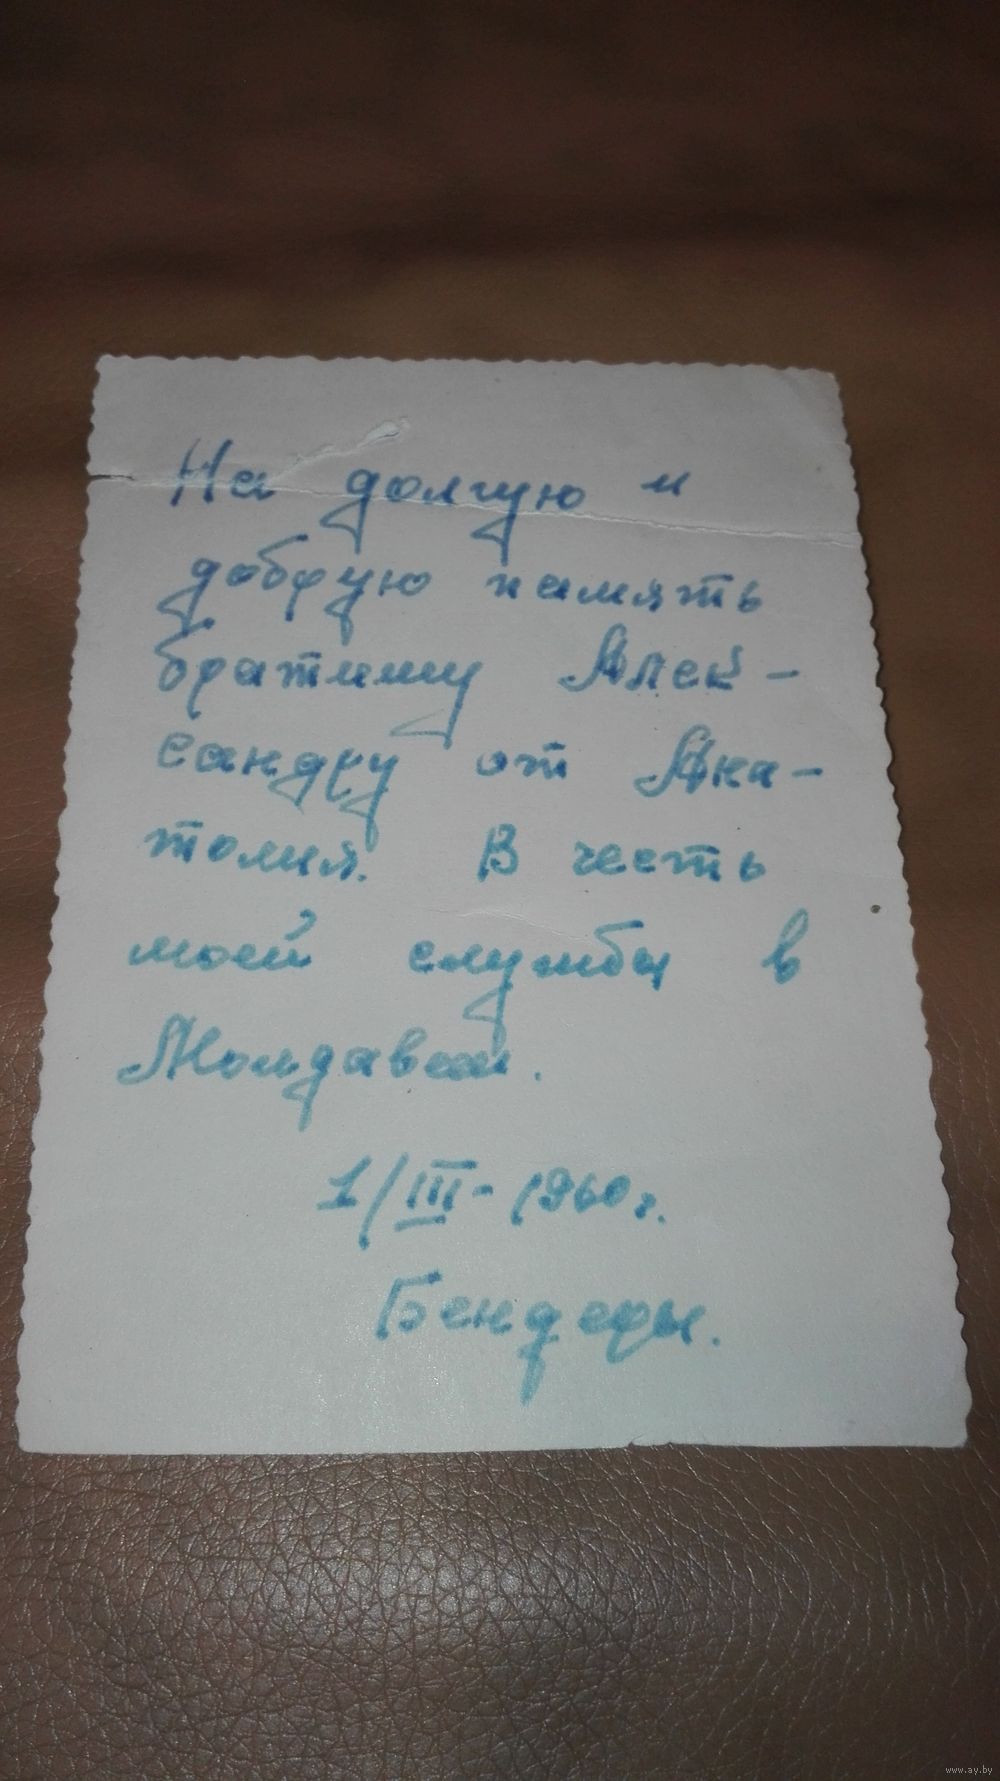 На долгую и
добрую память
братишу Алек-
сандру от Ана-
толия. В честь
моей службы в
Молдавии.
1/III-1960г.
Бендеры.
www.ay.by